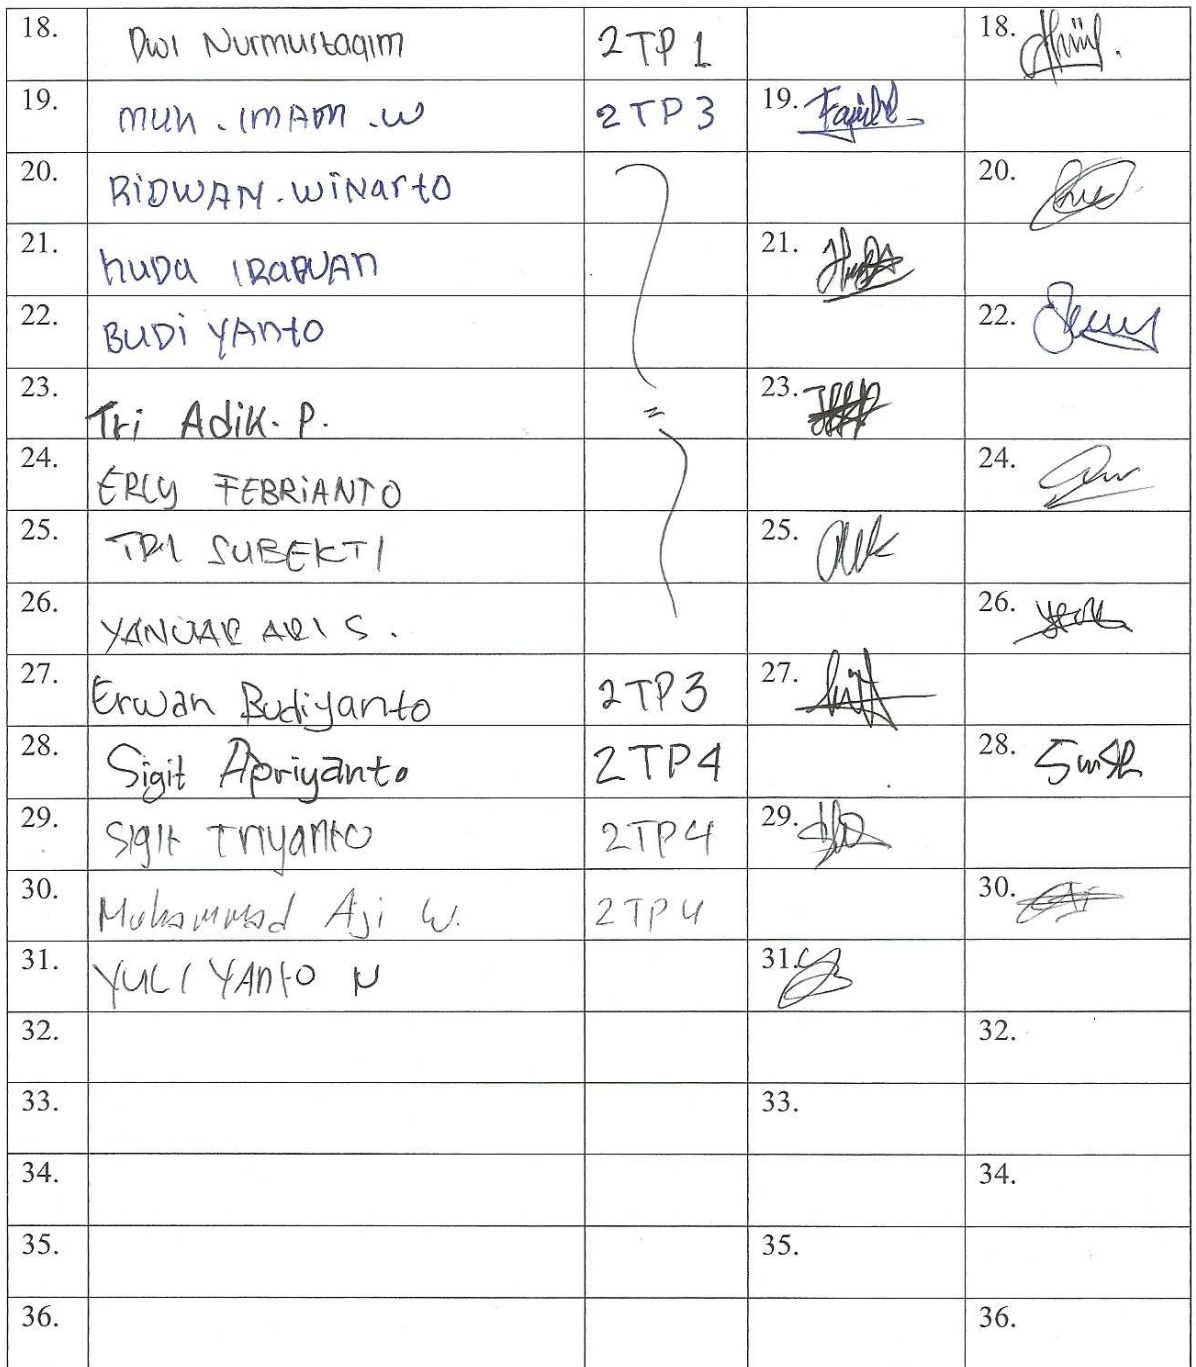 18. Dwi Nurmustaqim 2TP1 18.
19. MUH . IMAM . W 2TP3 19.
20. RiDWAN . WiNarto 20.
21. HUDA IRAWAN 21.
22. BUDi YANtO 22.
23. Tri Adik. P. 23.
24. ERLY FEBRiANTO 24.
25. TRI SUBEKTI 25.
26. YANUAR ARI S . 26.
27. Erwan Budiyanto 2TP3 27.
28. Sigit Apriyanto 2TP4 28.
29. Sigit Triyanto 2TP4 29.
30. Muhammad Aji W. 2TP4 30.
31. YULI YANtO N 31.
32. 32.
33. 33.
34. 34.
35. 35.
36. 36.